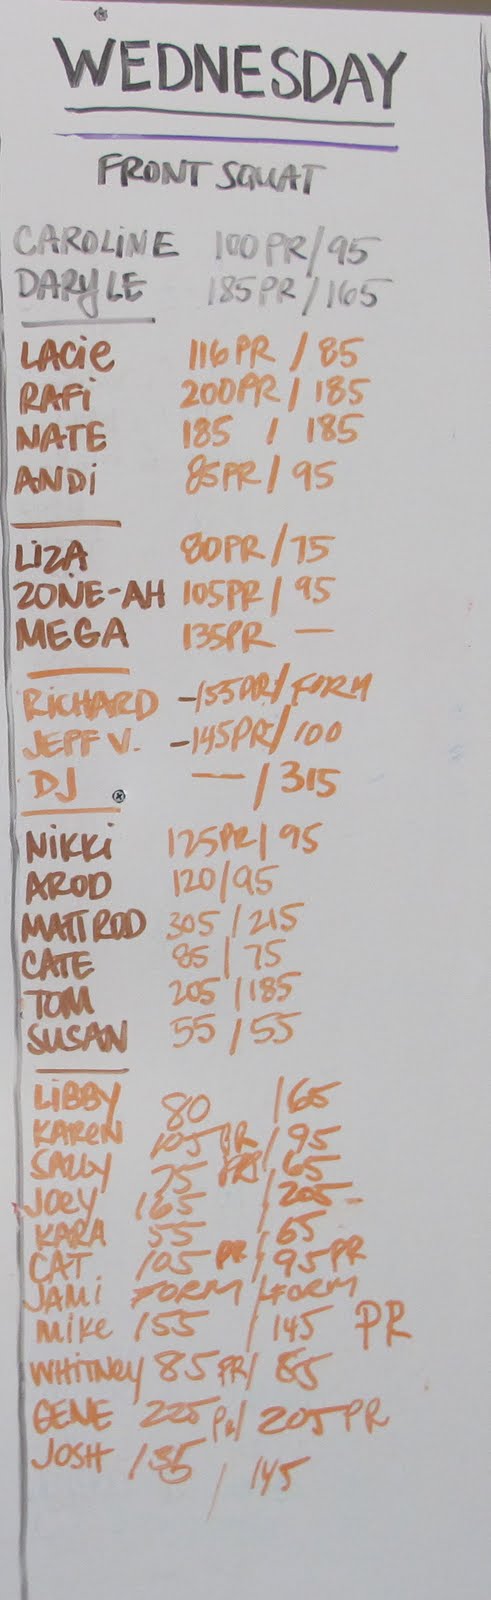 WEDNESDAY
FRONT SQUAT
CAROLINE 100PR/95
DARYLE 185PR/165
LACIE 116PR / 85
RAFI 200PR / 185
NATE 185 / 185
ANDI 85PR / 95
LIZA 80PR/75
ZONE-AH 105PR / 95
MEGA 135PR —
RICHARD -155PR/FORM
JEFF V. -145PR/100
DJ — / 315
NIKKI 125PR / 95
AROD 120/95
MATT ROD 305 / 215
CATE 85 / 75
TOM 205 / 185
SUSAN 55 / 55
LIBBY 80 / 65
KAREN 105 PR / 95
SALLY 75 PR / 65
JOEY 165 / 205
KARA 55 / 65
CAT 105 PR / 95 PR
JAMI FORM / FORM
MIKE 155 / 145 PR
WHITNEY 85 PR / 85
GENE 225 PR / 205 PR
JOSH 135 / 145